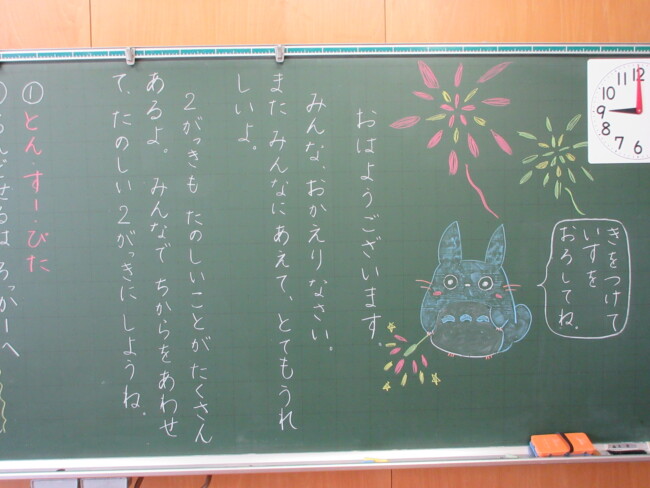 12
11
10
9
8
7
6
きをつけて
いすを
おろしてね。
おはようございます。
みんな、おかえりなさい。
また みんなにあえて、とてもうれ
しいよ。
2がっきも たのしいことが たくさん
あるよ。 みんなで ちからを あわせ
て、たのしい 2がっきに しようね。
① とん・すー・ぴた
らんどせるは ろっかーへ